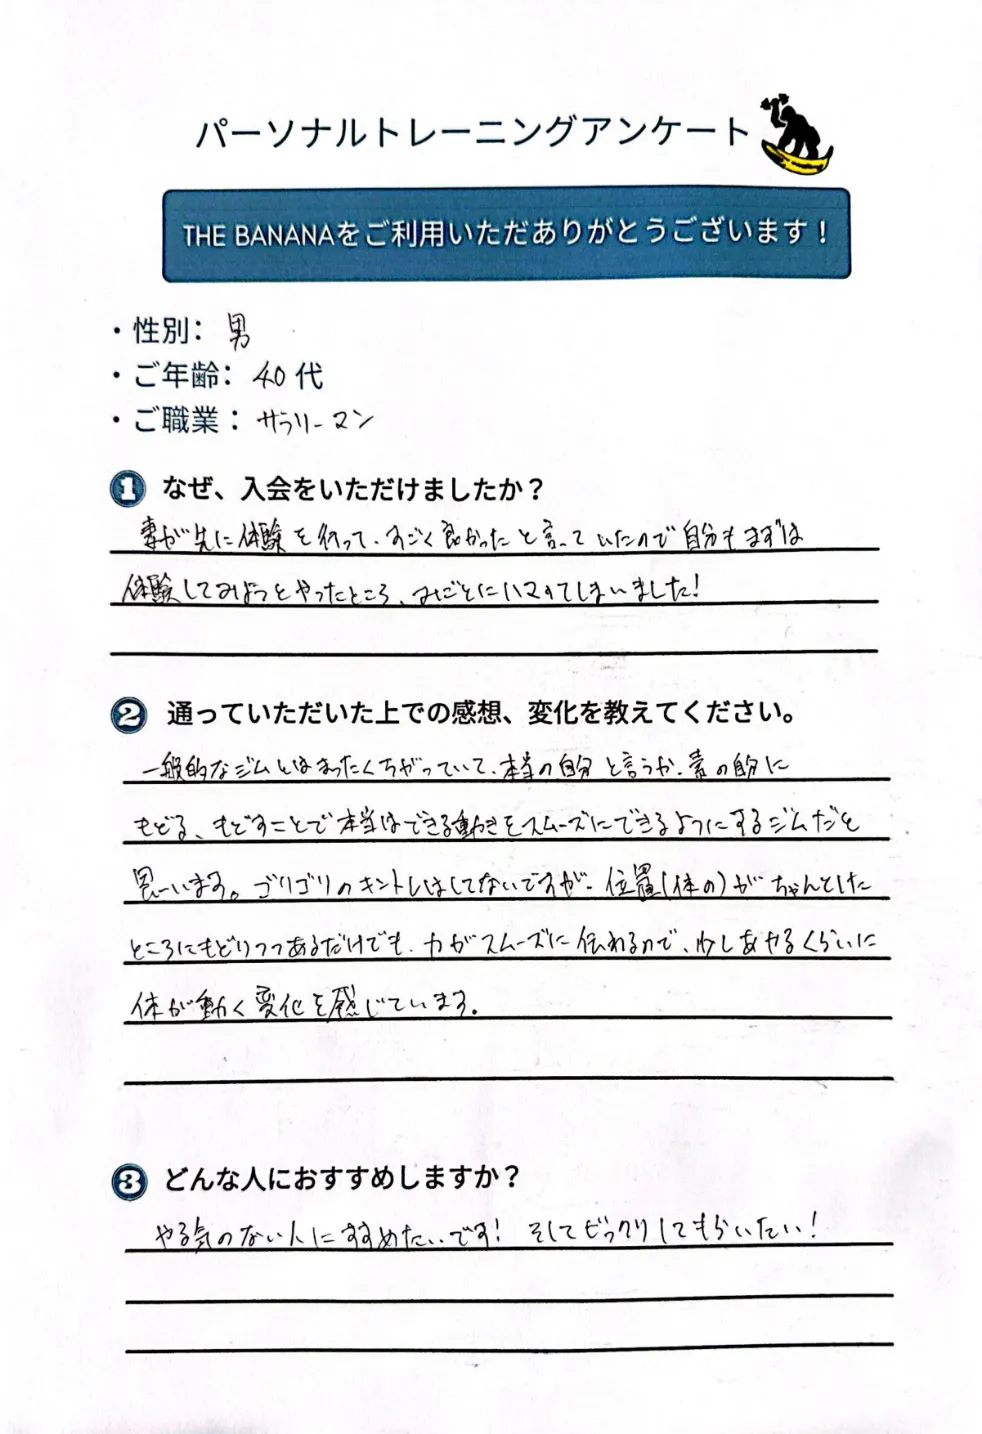 パーソナルトレーニングアンケート
THE BANANAをご利用いただありがとうございます！
・性別： 男
・ご年齢： 40代
・ご職業： サラリーマン
1 なぜ、入会をいただけましたか？
妻が先に体験を行って、すごく良かったと言っていたので自分もまずは
体験してみようとやったところ、みごとにハマってしまいました！
2 通っていただいた上での感想、変化を教えてください。
一般的なジムとはまったくちがっていて、本当の自分と言うか、素の自分に
もどる、もどすことで本当はできる動きをスムーズにできるようにするジムだと
思います。ゴリゴリのキントレはしてないですが、位置(体の)がちゃんとした
ところにもどりつつあるだけでも、力がスムーズに伝わるので、少しあやるくらいに
体が動く変化を感じています。
3 どんな人におすすめしますか？
やる気のない人にすすめたいです！ そしてビックリしてもらいたい！